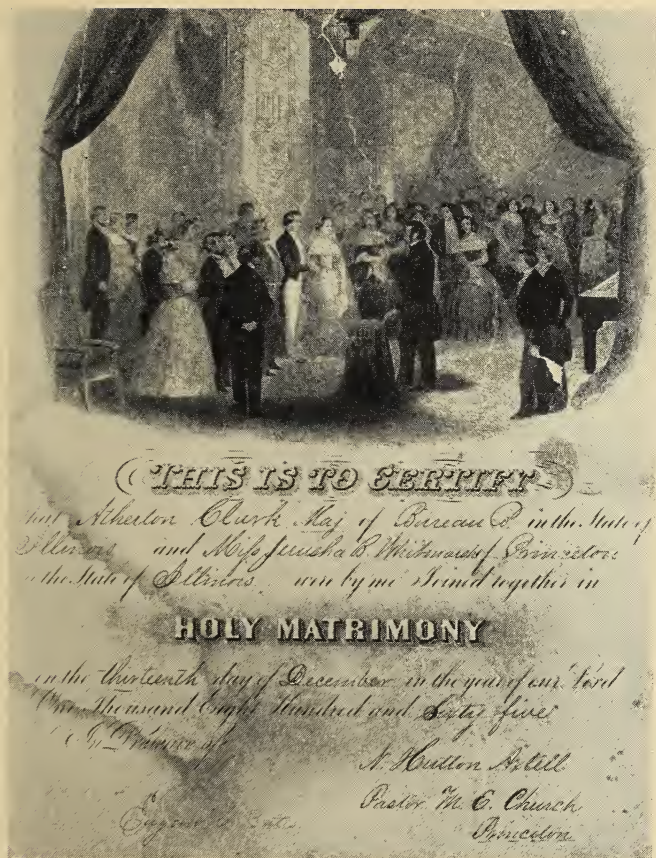 THIS IS TO CERTIFY
that Atherton Clark Maj of Bureau Co in the State of
Illinois and Miss Jerusha B. of Princeton
in the State of Illinois were by me Joined together in
HOLY MATRIMONY
on the thirteenth day of December in the year of our Lord
One Thousand Eight Hundred and Sixty five
In Presence of
N. Hutton Axtell
Pastor M. E. Church
Eugene
Princeton